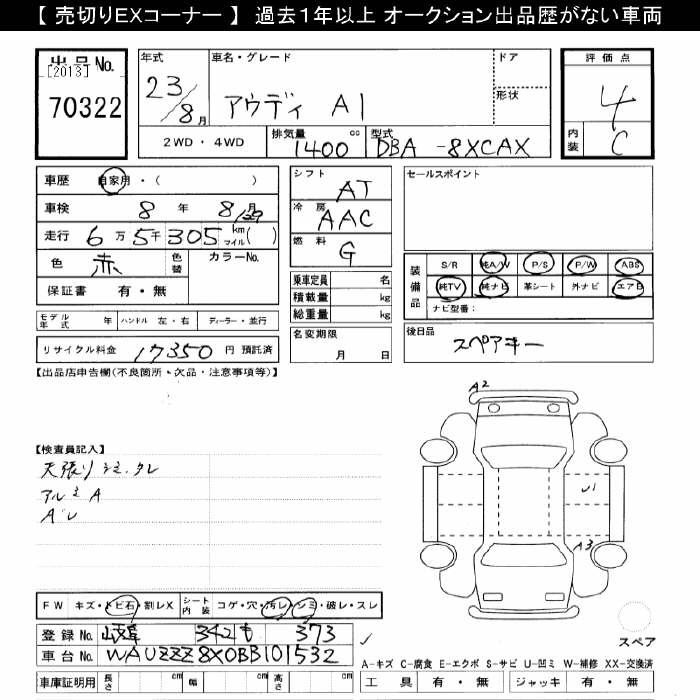 【 売切りEXコーナー 】 過去１年以上 オークション出品歴がない車両
出品No.
[2013]
70322
年式
23/8月
車名・グレード
アウディ A1
ドア
形状
評価点
4
内装 C
2WD ・ 4WD
排気量 1400 cc
型式 DBA -8XCAX
車歴 自家用・( )
車検 8年 8月/29
走行 6万5千305 km マイル( )
色 赤 色替 カラーNo.
保証書 有・無
シフト AT
冷房 AAC
燃料 G
乗車定員 名
積載量 kg
総重量 kg
セールスポイント
装備品 S/R 純A/W P/S P/W ABS
純TV 純ナビ 革シート 外ナビ エアB
ナビ型番:
モデル年式 年 ハンドル 左・右 ディーラー・並行
リサイクル料金 17350 円 預託済
名変期限 月 日
後日品
スペアキー
【出品店申告欄(不良箇所・欠品・注意事項等)】
A2
【検査員記入】
天張りシミ、タレ
アルミA
U1
A3
FW キズ・トビ石・割レX シート内装 コゲ・穴・汚レ・シミ・破レ・スレ
登録No. 岐阜 342 も 373
スペア
車台No. WAUZZZ8X0BB101532
A-キズ C-腐食 E-エクボ S-サビ U-凹ミ W-補修 XX-交換済
車庫証明用 長さ cm 幅 cm 高さ cm
工具 有・無 ジャッキ 有・無